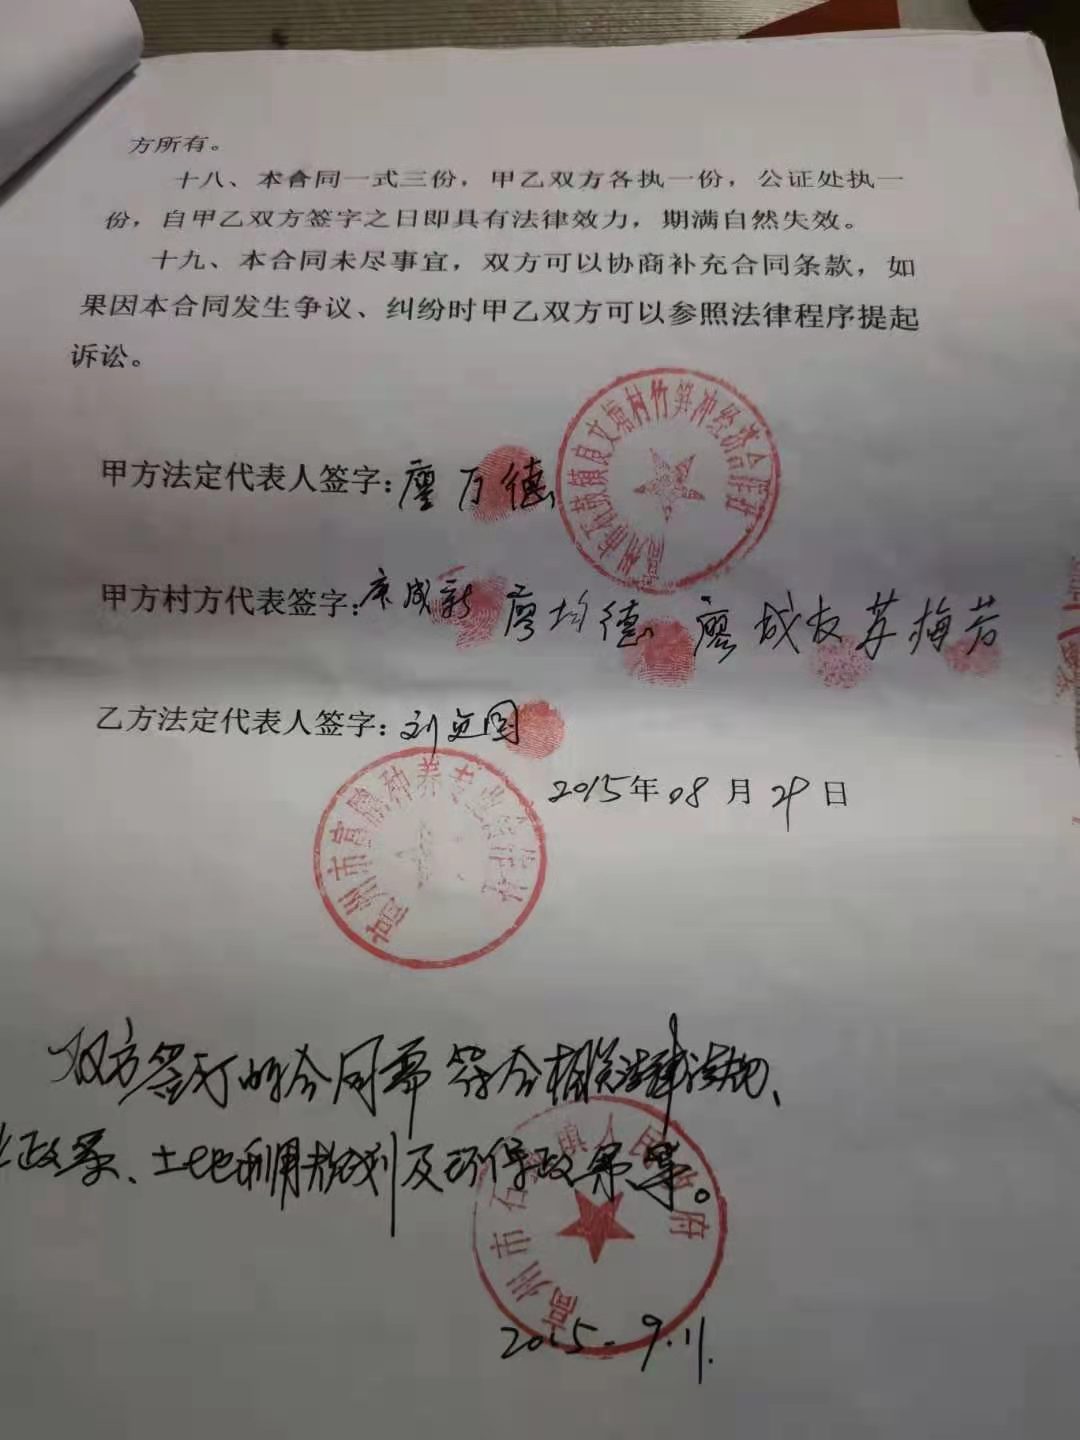 方所有。
十八、本合同一式三份，甲乙双方各执一份，公证处执一
份，自甲乙双方签字之日即具有法律效力，期满自然失效。
十九、本合同未尽事宜，双方可以协商补充合同条款，如
果因本合同发生争议、纠纷时甲乙双方可以参照法律程序提起
诉讼。
高州市石鼓镇良文塘村竹笋冲经济合作社
甲方法定代表人签字：廖万德
甲方村方代表签字：廖成新 廖均德 廖成友 苏梅芳
乙方法定代表人签字：刘
2015年08月29日
高州市富隆种养专业合作社
双方签订的合同要符合相关法律法规、
政策、土地利用规划及环保政策等。
高州市石鼓镇人民政府
2015-9.11.